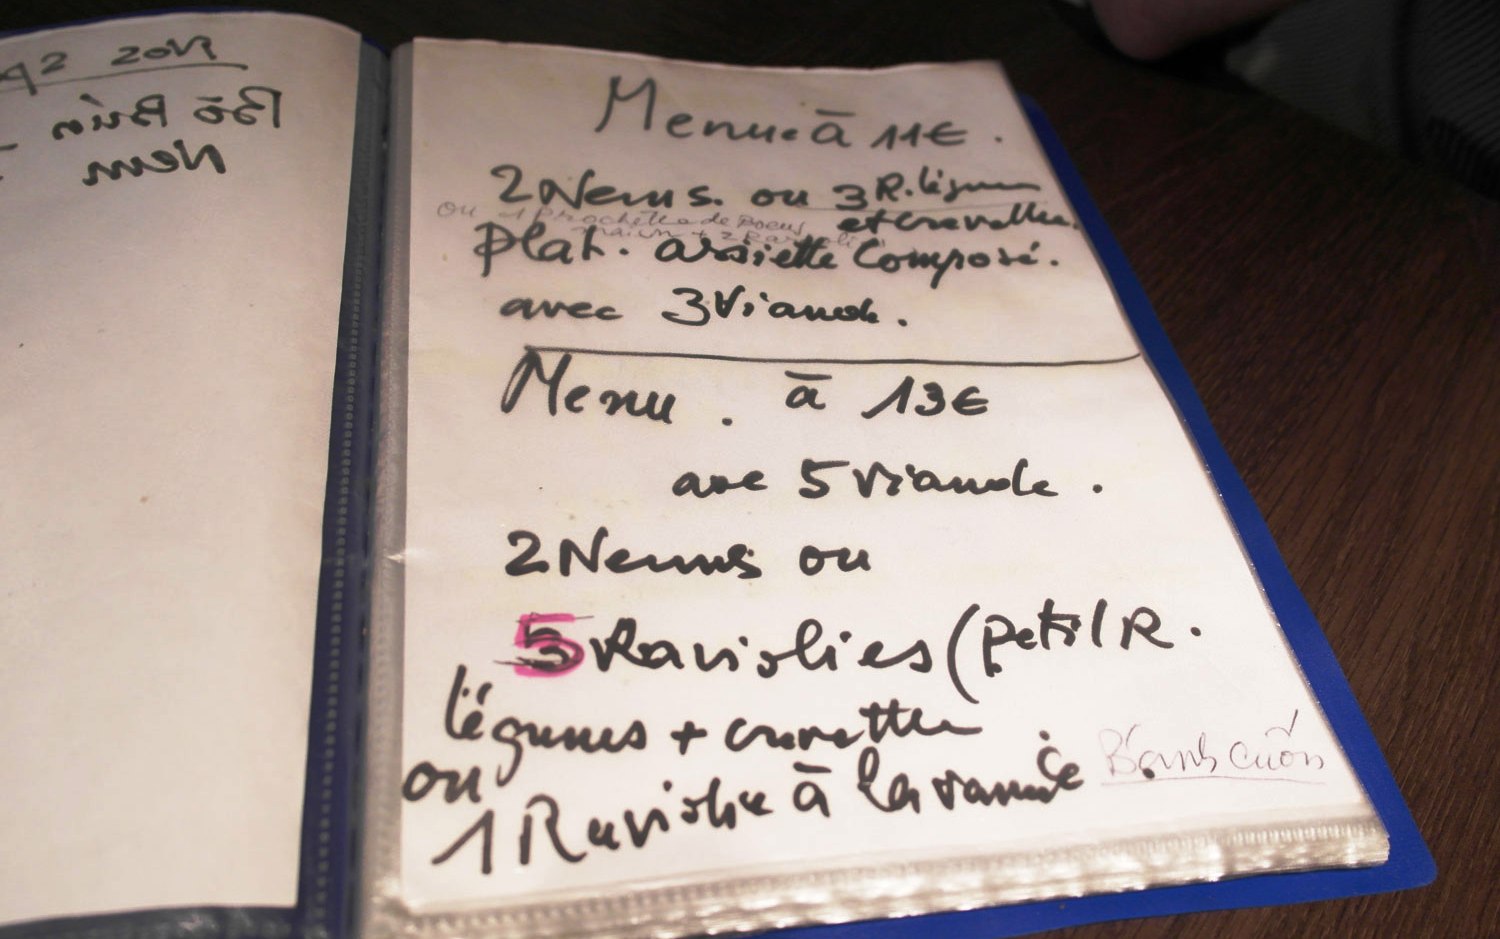 Bō Bún
Nem
Menu à 11€.
2 Nems. ou 3 R. légumes
et crevettes.
ou 1 brochette de boeuf
Plat. assiette Composé.
avec 3 Viande.
Menu. à 13€
avec 5 viande.
2 Nems ou
5 Raviolies (petit R.
légumes + crevettes
ou
1 Raviolie à la vapeur
Bánh cuốn